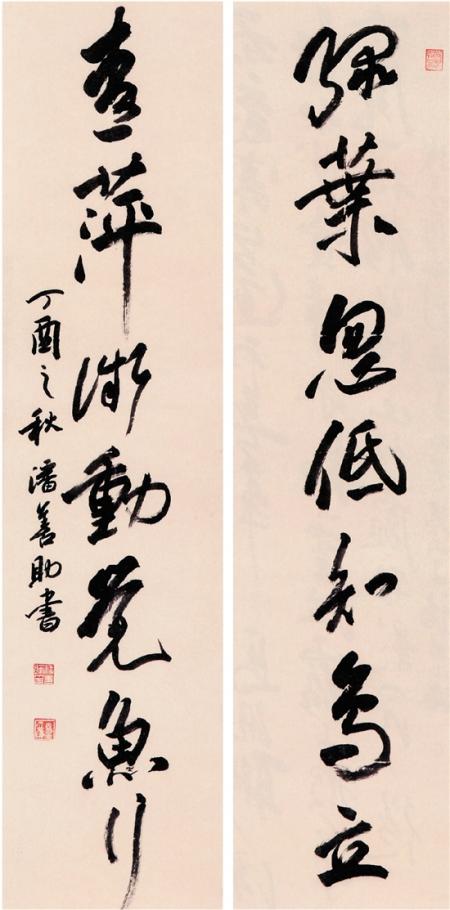 綠葉忽低知鳥立
青萍微動覺魚行
丁酉之秋 潘善助書